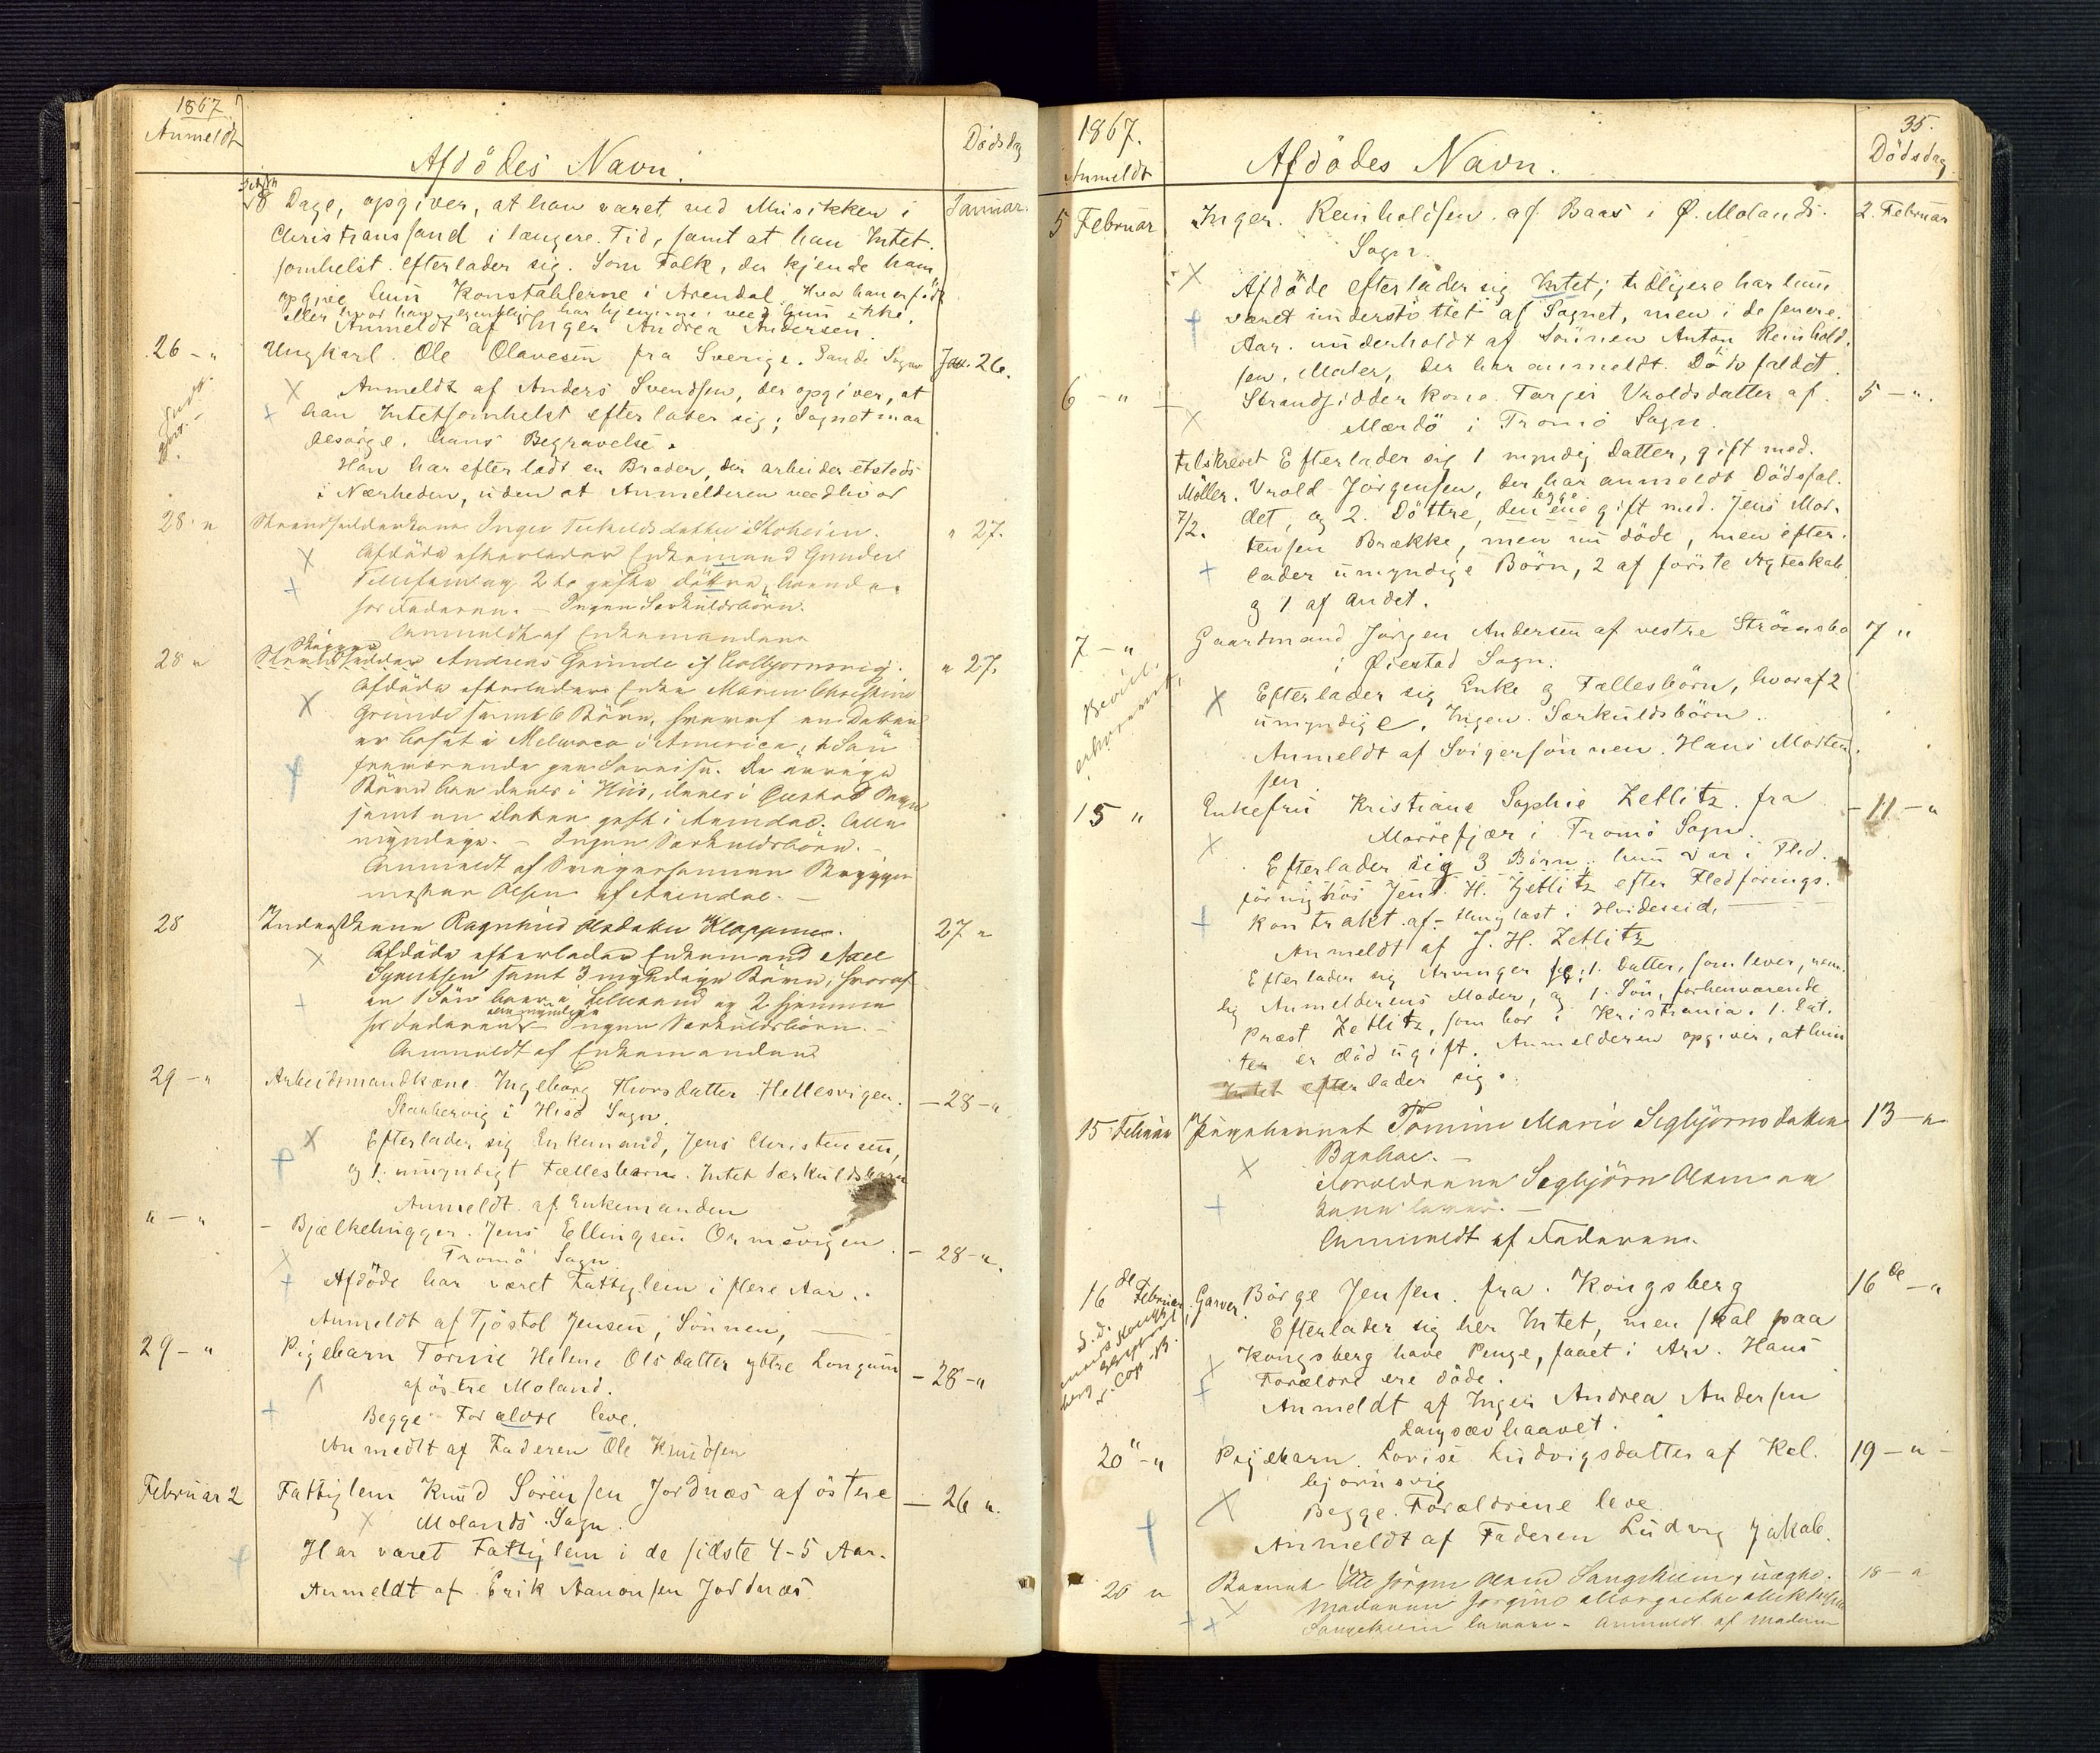 1867
Anmeldt
Afdödes Navn.
Dödsdag
8 Dage, opgiver, at han været ved Musikken i
Januar.
Christianssand i længere Tid, samt at han Intet
somhelst efterlader sig. Som Folk, der kjende ham,
opgiver hun Konstablerne i Arendal. Hvor han er född
eller hvor han egentlig har hjemme, veed hun ikke.
Anmeldt af Inger Andrea Andersen.
26 - "
Ungkarl Ole Olavesen fra Sverige.
Jan. 26.
Anmeldt af Anders Svendsen, der opgiver, at
han Intetsomhelst efterlader sig; Sognet maa
besørge hans Begravelse.
Han har efterladt en Broder, der arbeider etsteds
i Nærheden, uden at Anmelderen veed hvor
28 "
Strandsidderkone Inger
" 27.
Afdöde efterlader Enkemand Gunder
Tellefsen og 2 gifte döttre,
for Faderen. - Ingen Særkuldsbörn.
Anmeldt af Enkemanden
28 "
Skipper
Strandsidder Andreas Grunde af Kolbjornsvig.
" 27.
Afdöde efterlader Enke Maren Christine
Grunde samt 6 Börn, hvoraf en Datter
er bosat i America, 1 Sön
fraværende paa Søreise. De øvrige
Börn
samt en Datter gift i Arendal. Alle
myndige. - Ingen Særkuldsbörn. -
Anmeldt af Svigersönnen
Olsen af Arendal. -
28
Inderstkone Ragnhild Olsdatter Kloppene.
27 "
Afdöde efterlader Enkemand Axel
samt 3 myndige Börn, hvoraf
en Sön og 2 hjemme
hos Faderen - Ingen Særkuldsbörn. -
Anmeldt af Enkemanden
29 - "
Arbeidsmandkone Ingeborg Thorsdatter Hellesvigen
- 28 - "
i Hisö Sogn.
Efterlader sig Enkemand, Jens Christensen,
og 1 umyndigt Fællesbarn. Intet Særkuldsbarn
Anmeldt af Enkemanden
" - "
- Bjælkehugger Jens Ellingsen Ormsvigen
- 28 - "
Tromö Sogn.
Afdöde har været Fattiglem i flere Aar.
Anmeldt af Tjöstol Jensen, Sönnen,
29 - "
Pigebarn Tomine Helene Olsdatter ytre Longum
- 28 - "
af östre Moland.
Begge Forældre leve.
Anmeldt af Faderen Ole Knudsen
Februar 2
Fattiglem Knud Sörensen Jordnæs af östre
- 26 "
Molands Sogn.
Har været Fattiglem i de sidste 4-5 Aar.
Anmeldt af Erik Aanonsen Jordnæs
1867.
35.
Anmeldt
Afdödes Navn.
Dödsdag
5 Februar
Inger Reinholdsen af Baas i Ø. Molands
2. Februar
Sogn.
Afdöde efterlader sig Intet; tidligere har hun
været understöttet af Sognet, men i de senere
Aar underholdt af Sönnen Anton Reinhold-
sen, Maler, der har anmeldt Dödsfaldet.
6 - "
Strandsidderkone Targer Vroldsdatter af
5 - "
Mærdö i Tromö Sogn.
tilskrevet
Møller.
7/2.
Efterlader sig 1 myndig Datter, gift med
Vrold Jørgensen, der har anmeldt Dödsfal-
det, og 2 Döttre, begge gift med Jens Mor-
tensen Brække, men nu döde, men efter-
lader umyndige Börn, 2 af förste Ægteskab
og 1 af andet.
7 - "
Gaardmand Jörgen Andersen af vestre Strömsbo
7 "
Bevill.
i Øiestad Sogn.
Efterlader sig Enke og Fællesbörn, hvoraf 2
umyndige. Ingen Særkuldsbörn.
Anmeldt af Svigersönnen Hans Morten-
sen.
15 "
Enkefru Kristiane Sophie Zetlitz fra
- 11 - "
Marrefjær i Tromö Sogn.
Efterlader sig 3 Börn; hun var i Fled-
föring hos Jens H. Zetlitz efter Fledförings-
kontrakt af thinglæst i Hvideseid,
Anmeldt af J. H. Zetlitz
Efterlader sig Arvinger 1 Datter, som lever, nem-
lig Anmelderens Moder, og 1 Sön, forhenværende
Præst Zetlitz, som bor i Kristiania. 1 Dat-
ter er död ugift. Anmelderen opgiver, at hun
Intet efterlader sig.
15 Februar
Pigebarnet Tomine Marie Segbjörnsdatter
13 - "
Forældrene Segbjörn Olsen og
kone lever. -
Anmeldt af Faderen.
16de Februar
Garver Börge Jensen fra Kongsberg
16de - "
Efterlader sig her Intet, men skal paa
Kongsberg have Penge, faaet i Arv. Hans
Forældre ere döde.
Anmeldt af Inger Andrea Andersen
Langsævhaavet.
20 - "
Pigebarn Lovise Ludvigsdatter af Kol-
19 - "
bjornsvig
Begge Forældrene leve.
Anmeldt af Faderen Ludvig Jakob.
20 "
Barnet Ole Jörgen Olsen Songekleiv, uægte.
18 - "
Moderen Jörgine Margrethe
Songekleiv lever. - Anmeldt af Moderen